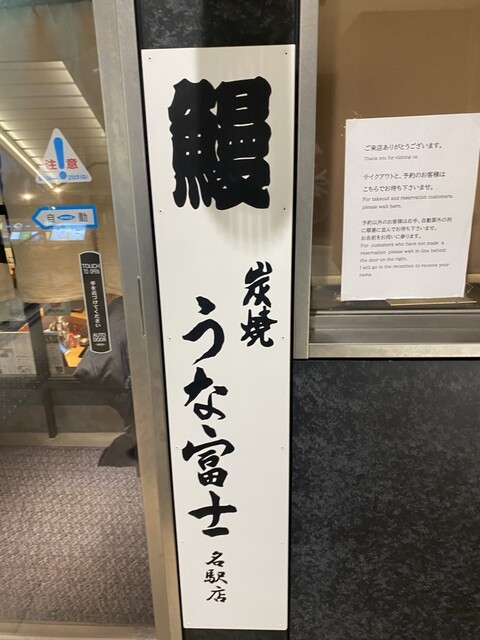 鰻
炭焼
うな富士
名駅店
注意
自動
TOUCH
TO OPEN
手を近づけてください
AUTO
DOOR
ご来店ありがとうございます。
Thank you for visiting us.
テイクアウトと、予約のお客様は
こちらでお待ち下さいませ。
For takeout and reservation customers,
please wait here.
予約以外のお客様は右手、自動扉外の列
に順番に並んでお待ち下さいませ。
お名前をお伺いに参ります。
For customers who have not made a
reservation please wait in line behind
the door on the right.
I will go to the reception to receive your
name.